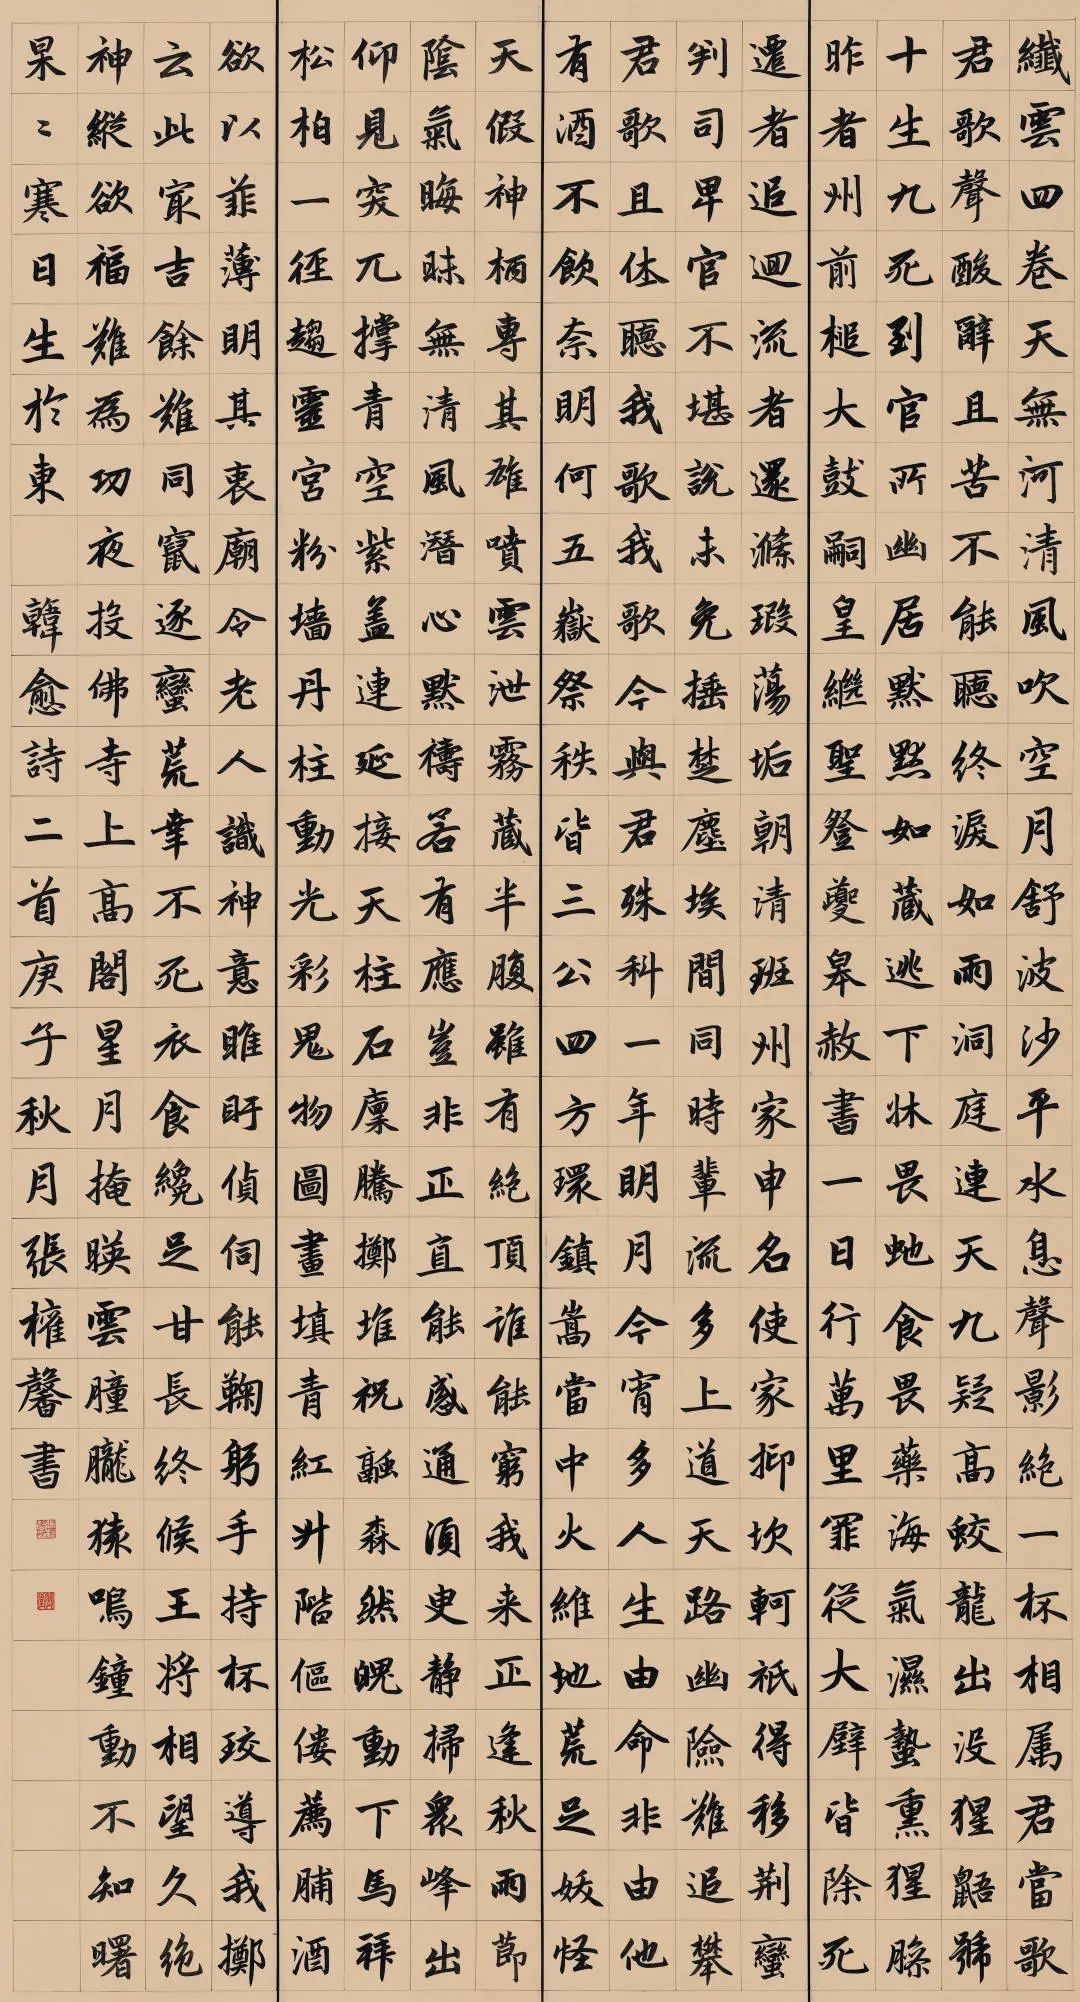 纖雲四卷天無河清風吹空月舒波沙平水息聲影絕一杯相属君當歌
君歌聲酸辭且苦不能聽終淚如雨洞庭連天九疑高蛟龍出没猩鼯號
十生九死到官所幽居默默如藏逃下牀畏蛇食畏藥海氣濕蟄熏猩臊
昨者州前槌大鼓嗣皇繼聖登夔皋赦書一日行萬里罪從大辟皆除死
遷者追迴流者還滌瑕蕩垢朝清班州家申名使家抑坎軻祇得移荊蠻
判司卑官不堪說未免捶楚塵埃間同時輩流多上道天路幽險難追攀
君歌且休聽我歌我歌今與君殊科一年明月今宵多人生由命非由他
有酒不飲奈明何五嶽祭秩皆三公四方環鎮嵩當中火維地荒足妖怪
天假神柄專其雄噴雲泄霧藏半腹雖有絕頂誰能窮我来正逢秋雨節
陰氣晦昧無清風潛心默禱若有應豈非正直能感通須臾静掃眾峰出
仰見突兀撐青空紫蓋連延接天柱石廩騰擲堆祝融森然魄動下馬拜
松柏一徑趨靈宮粉墻丹柱動光彩鬼物圖畫填青紅升階傴僂薦脯酒
欲以菲薄明其衷廟令老人識神意睢盱偵伺能鞠躬手持杯珓導我擲
云此冣吉餘難同竄逐蠻荒幸不死衣食纔足甘長終侯王將相望久絕
神縱欲福難為功夜投佛寺上高閣星月掩暎雲朣朧猿鳴鐘動不知曙
杲〻寒日生於東 韓愈詩二首庚子秋月張權馨書